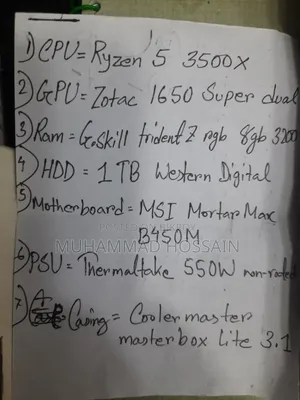 1) CPU = Ryzen 5 3500X
2) GPU = Zotac 1650 Super dual
3) Ram = G.skill trident Z rgb 8gb 3200
4) HDD = 1 TB Western Digital
5) Motherboard = MSI Mortar Max
B450M
MUHAMMAD HOSSAIN
6) PSU = Thermaltake 550W non-
7) Casing = Cooler master
masterbox Lite 3.1